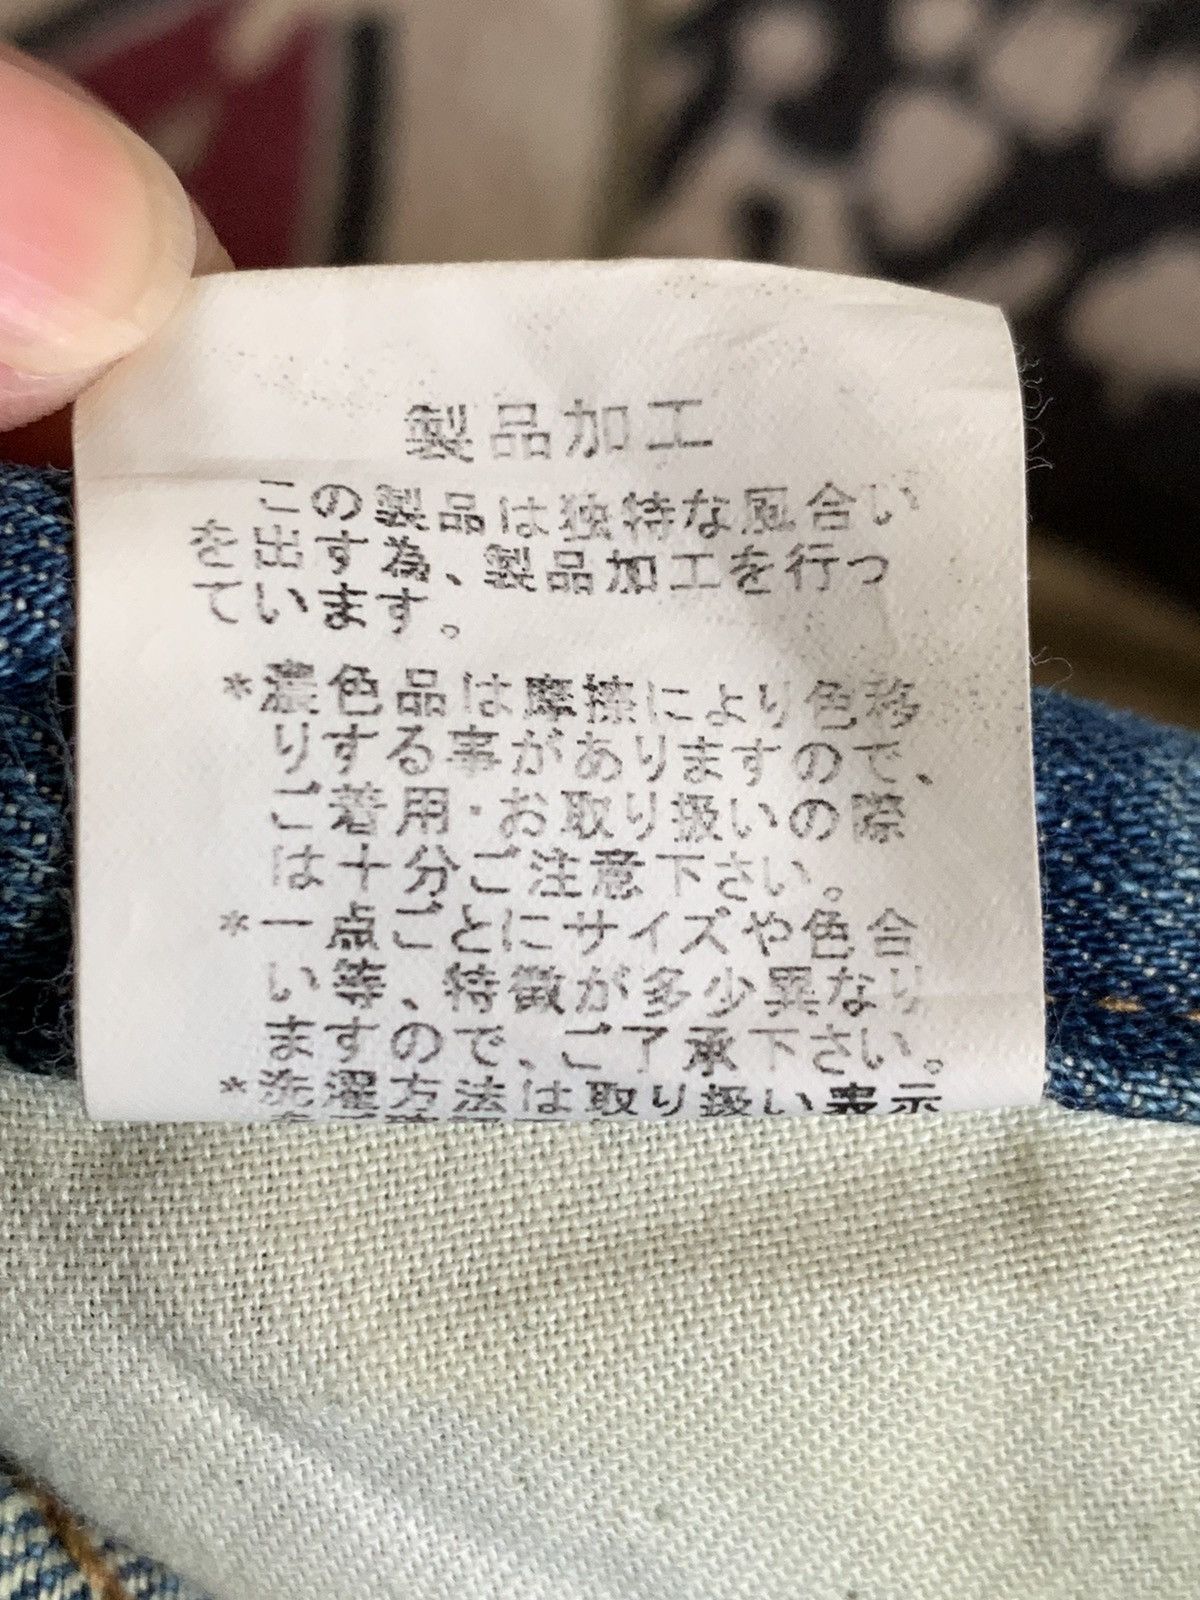 製品加工
この製品は独特な風合い
を出す為、製品加工を行っ
ています。
*濃色品は摩擦により色移
りする事がありますので、
ご着用・お取り扱いの際
は十分ご注意下さい。
*一点ごとにサイズや色合
い等、特徴が多少異なり
ますので、ご了承下さい。
*洗濯方法は取り扱い表示